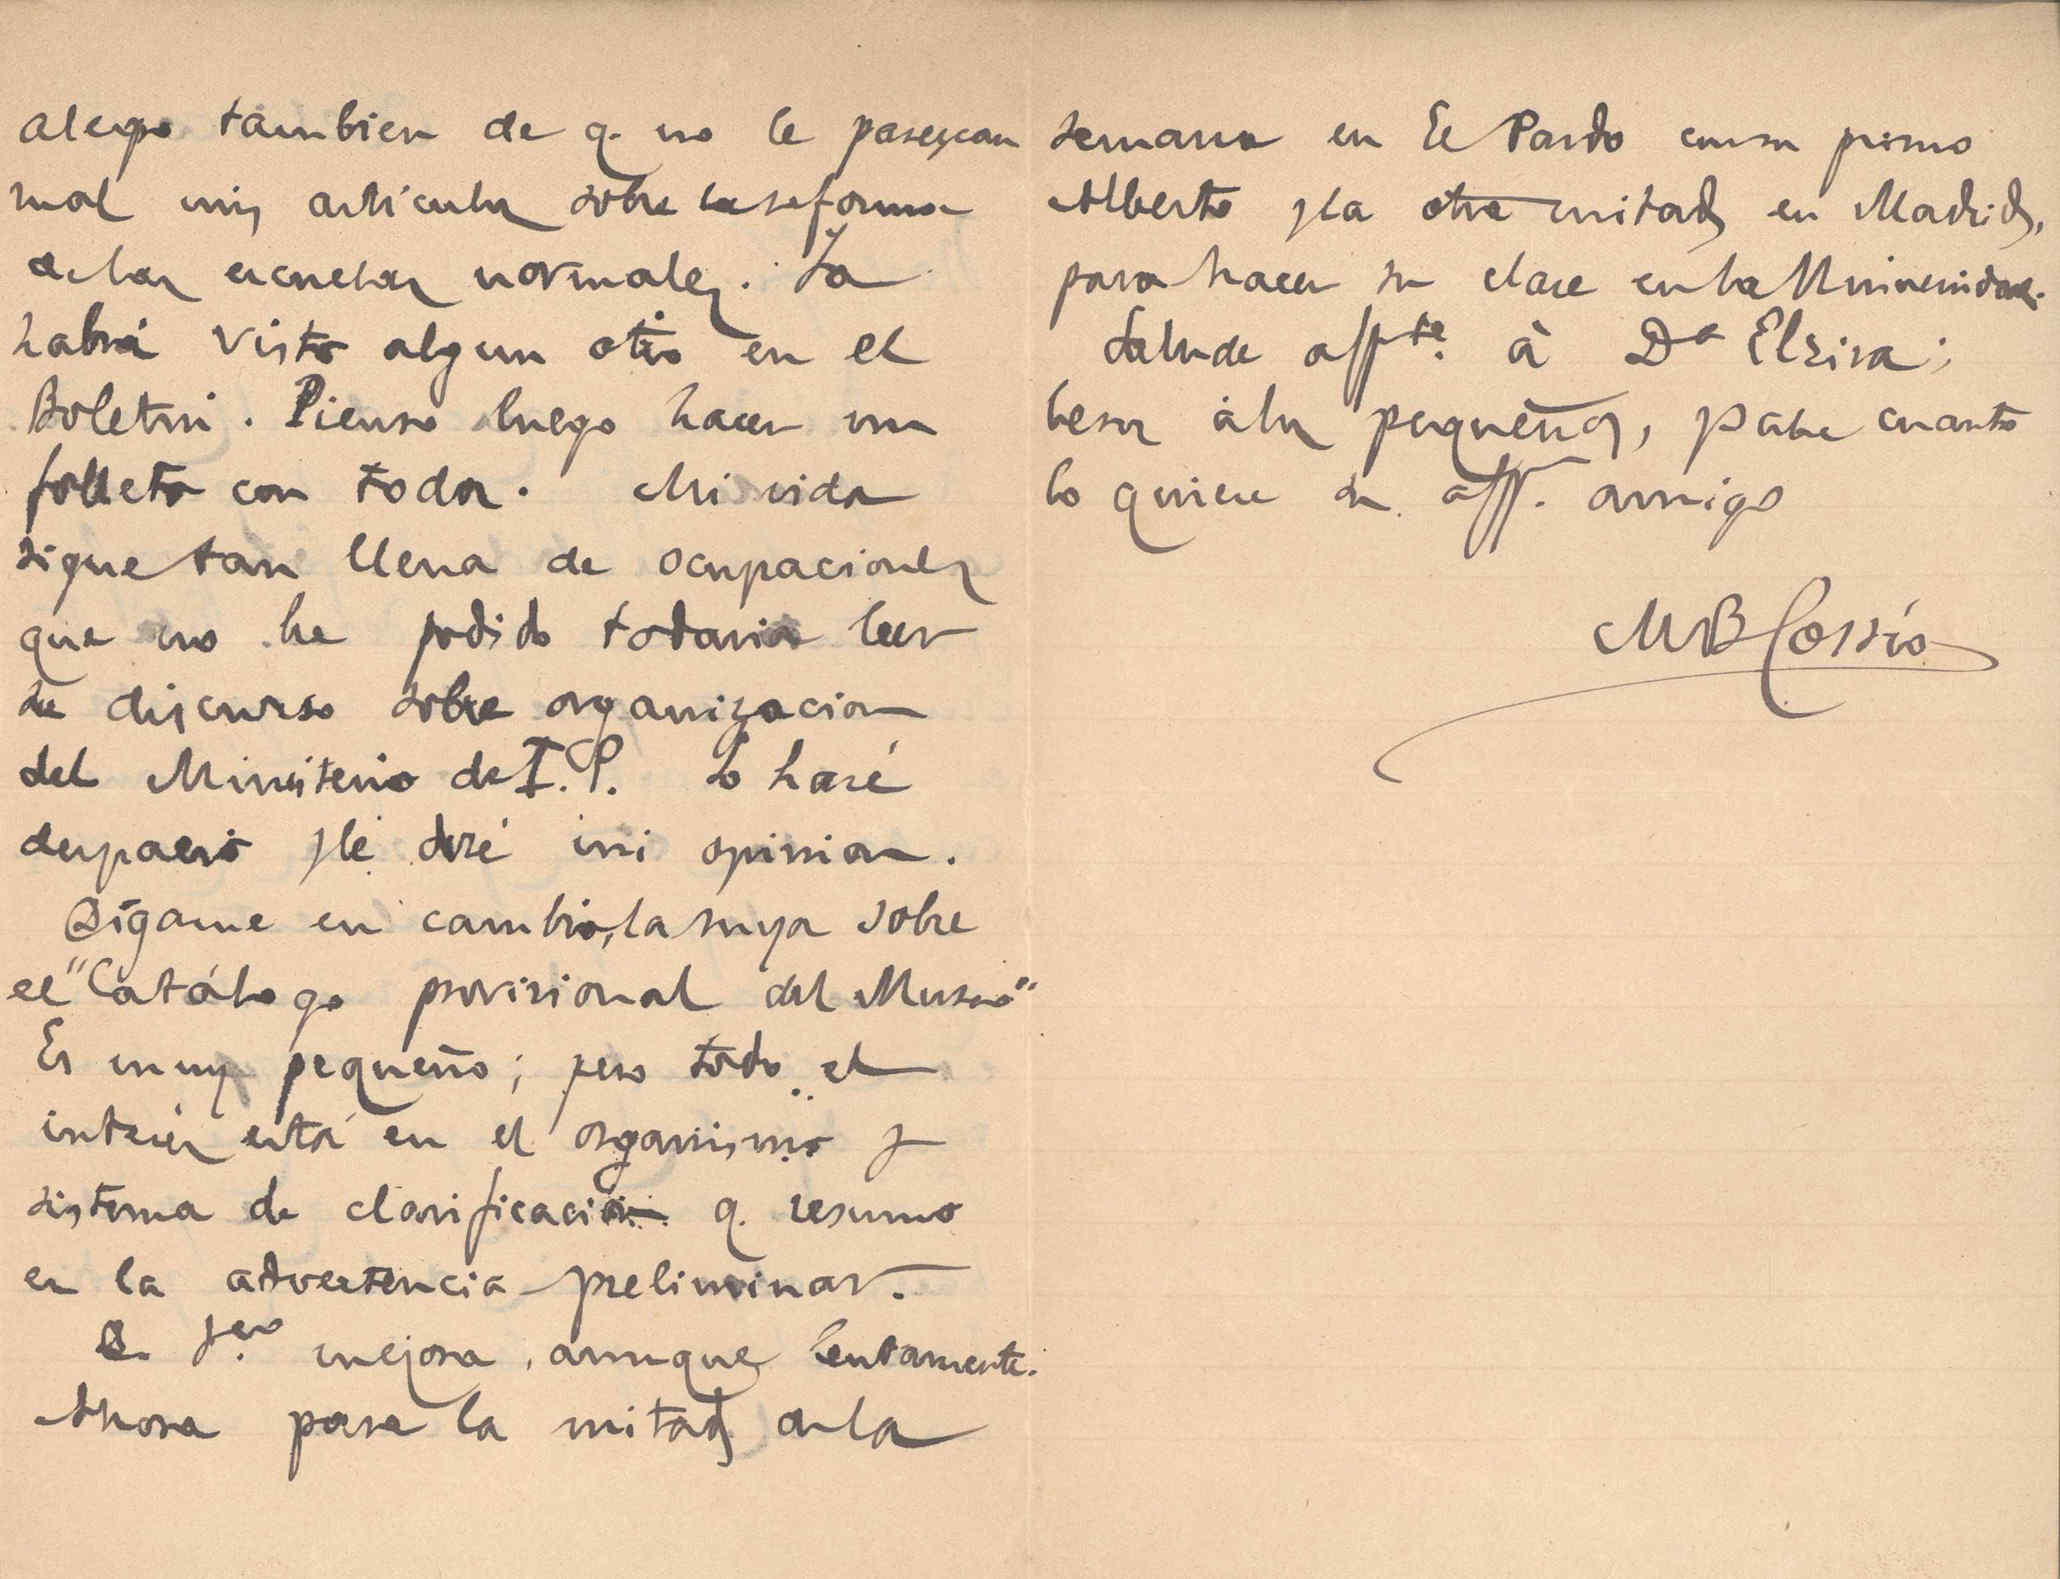 alegro tambien de q. no le parezcan
mal mis articulos sobre la reforma
de las escuelas normales. Ya
habrá visto algun otro en el
Boletin. Pienso luego hacer un
folleto con todos. Mi vida
sigue tan llena de ocupaciones
que no he podido todavia leer
su discurso sobre organizacion
del Ministerio de I. P. Lo haré
despacio y le diré mi opinion.
Dígame en cambio, la suya sobre
el "Catálogo provisional del Museo"
Es muy pequeño; pero todo el
interés está en el organismo y
sistema de clasificacion q. resumo
en la advertencia preliminar.
D. Fco. mejora, aunque lentamente.
Ahora pasa la mitad de la
semana en El Pardo con su primo
Alberto y la otra mitad en Madrid,
para hacer su clase en la Universidad.
Salude affte. à Dª Elzira;
besos à los pequeños, y sabe cuanto
lo quiere su aff. amigo
MB Cossío